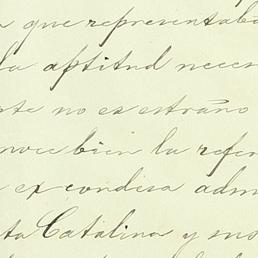 que representaba
la aptitud neces
te no es estraño
noce bien la refer
ex condisa adm
ta Catalina y mo